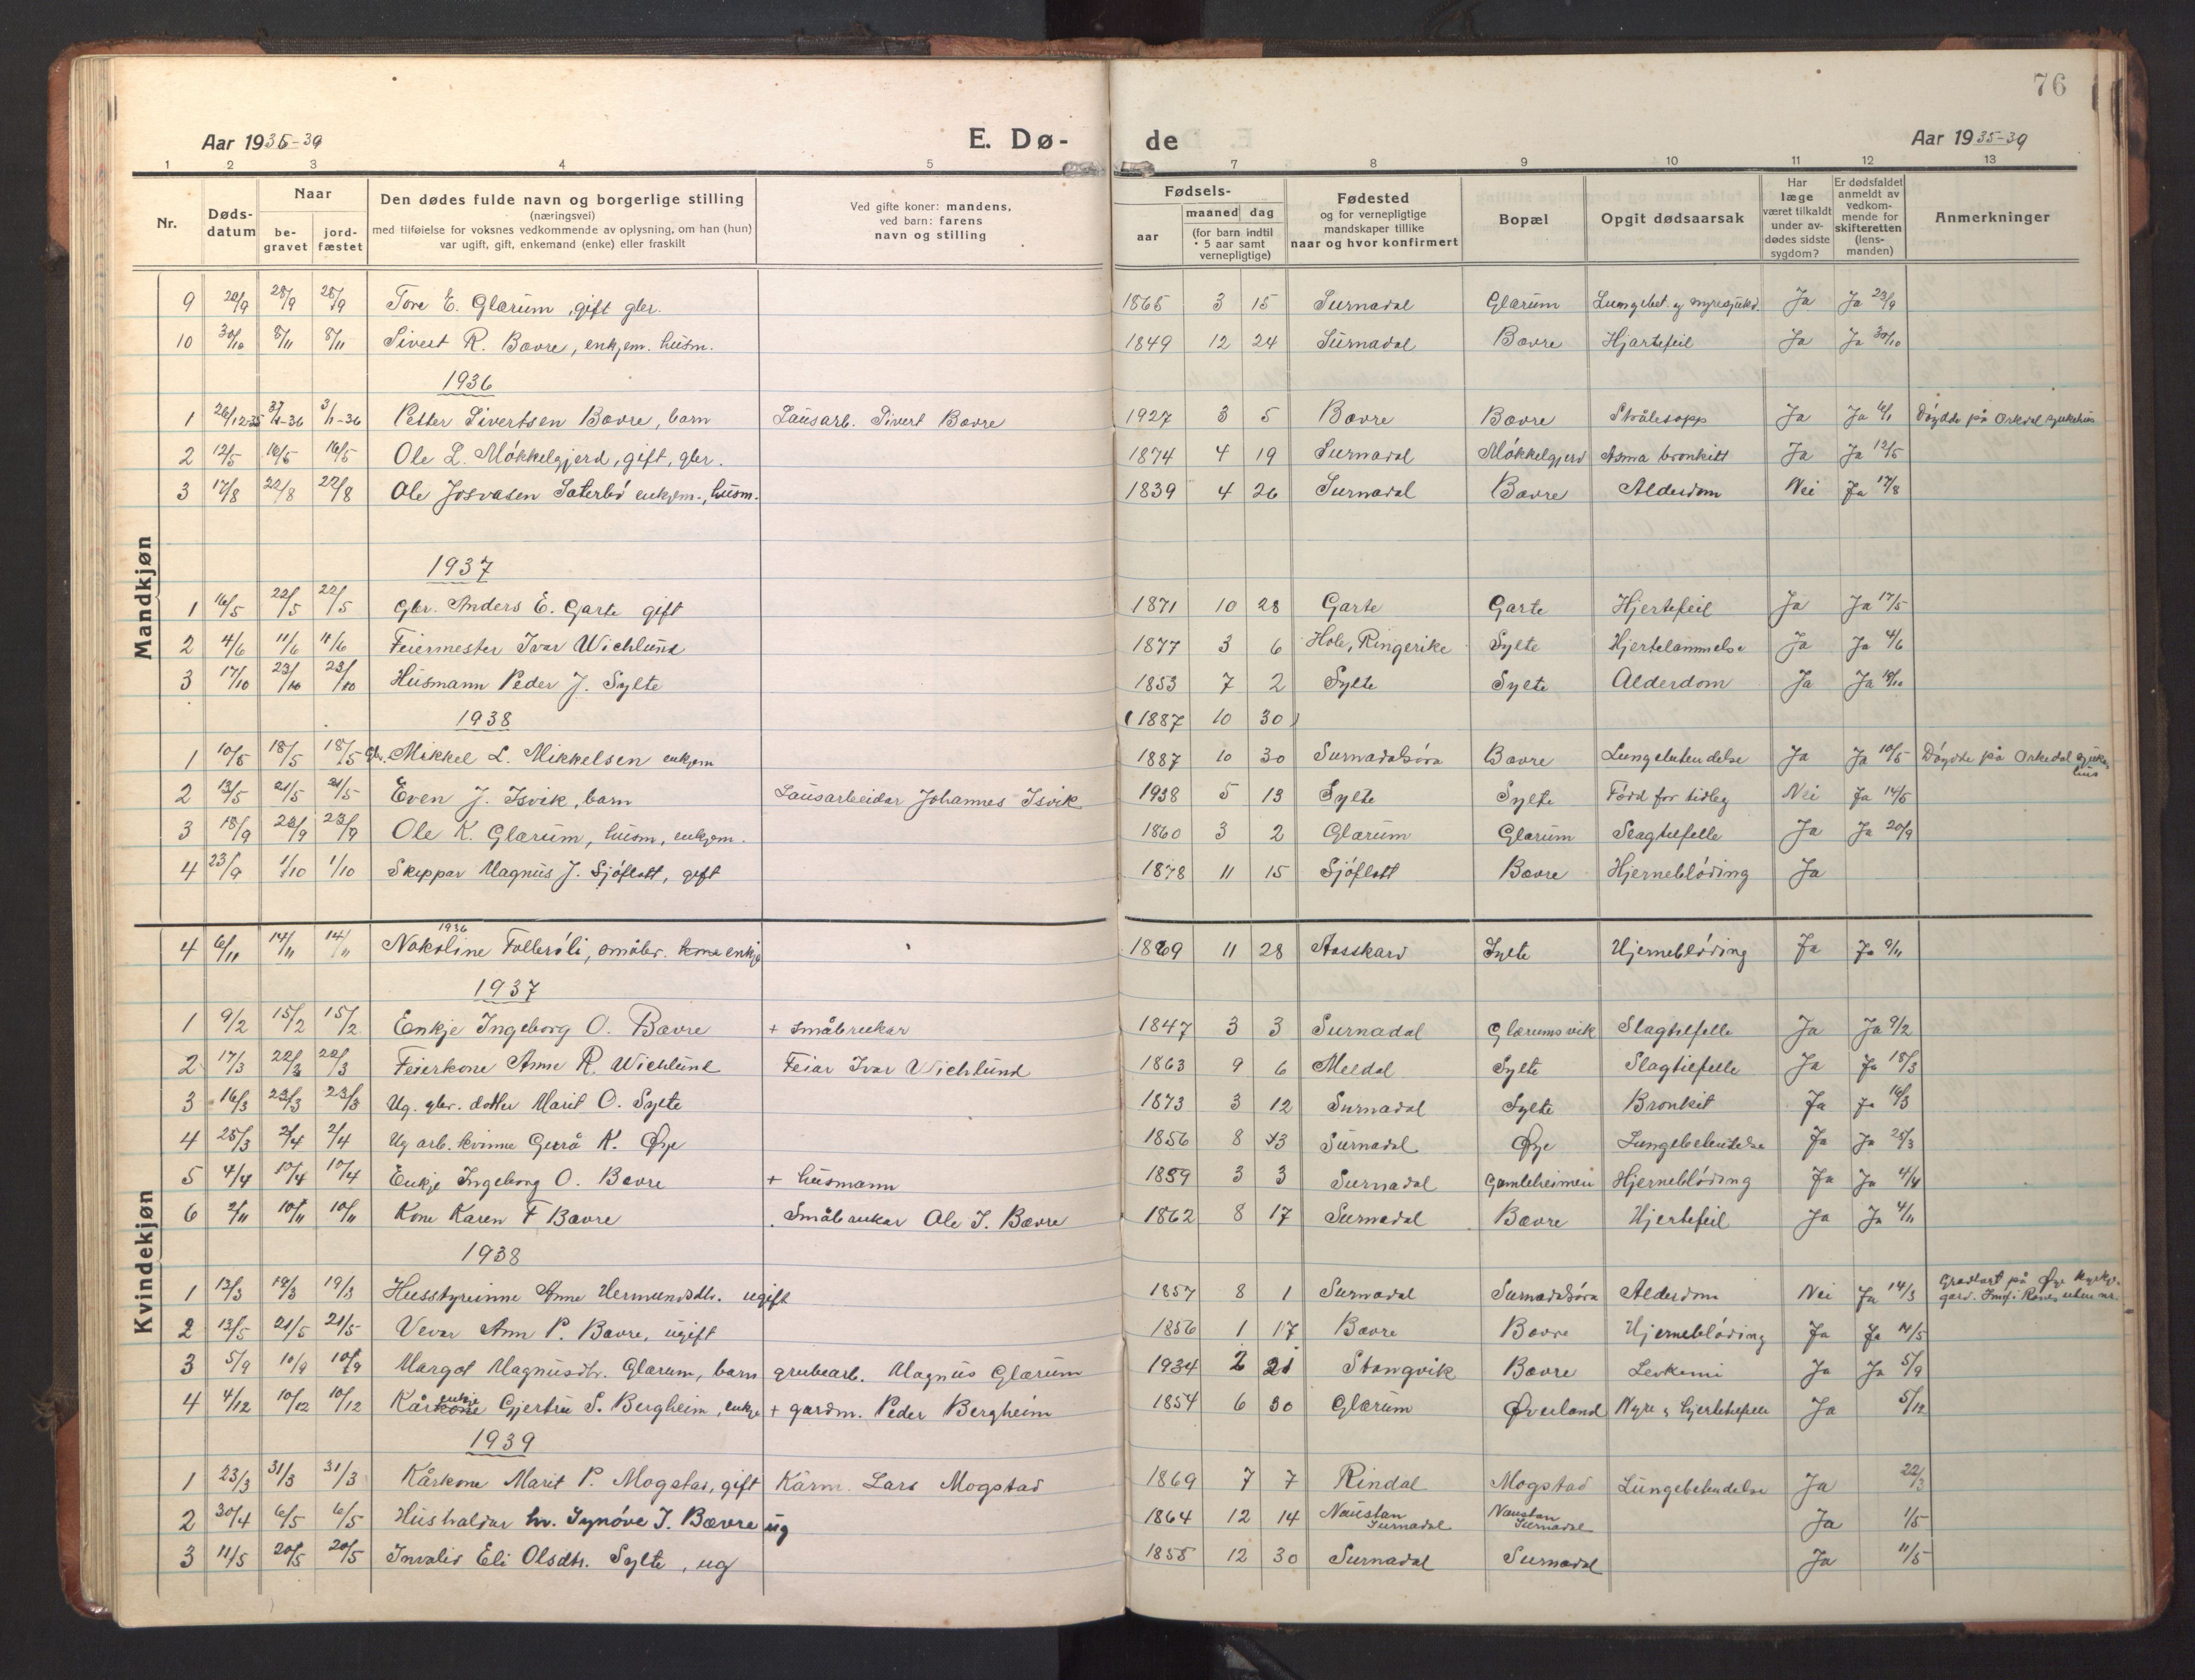 76
Aar 1935-39 E. Dø- de Aar 1935-39
1 2 3 4 5 7 8 9 10 11 12 13
Nr. Døds-datum Naar be-gravet jord-fæstet Den dødes fulde navn og borgerlige stilling (næringsvei) med tilføielse for voksnes vedkommende av oplysning, om han (hun) var ugift, gift, enkemand (enke) eller fraskilt Ved gifte koner: mandens, ved barn: farens navn og stilling Fødsels- aar maaned dag (for barn indtil 5 aar samt vernepligtige) Fødested og for vernepligtige mandskaper tillike naar og hvor konfirmert Bopæl Opgit dødsaarsak Har læge været tilkaldt under av-dødes sidste sygdom? Er dødsfaldet anmeldt av vedkom-mende for skifteretten (lens-manden) Anmerkninger
Mandkjøn
9 20/9 28/9 28/9 Tore E. Glærum, gift gbr. 1865 3 15 Surnadal Glærum Lungebet. og nyresjukd. Ja Ja 23/9
10 30/10 8/11 8/11 Sivert R. Bævre, enkjem. husm. 1849 12 24 Surnadal Bævre Hjartefeil Ja Ja 30/10
1936
1 26/12-35 3/1-36 3/1-36 Petter Sivertsen Bævre, barn Lausarb. Sivert Bævre 1927 3 5 Bævre Bævre Strålesopp Ja Ja 6/1 Døydde på Orkdal sjukehus
2 12/5 16/5 16/5 Ole L. Møkkelgjerd, gift, gbr. 1874 4 19 Surnadal Møkkelgjerd Asma bronkitt Ja Ja 12/5
3 17/8 22/8 22/8 Ole Josvasen Sæterbø enkjem., husm. 1839 4 26 Surnadal Bævre Alderdom Nei Ja 17/8
1937
1 16/5 22/5 22/5 Gbr. Anders E. Garte gift 1871 10 28 Garte Garte Hjertefeil Ja Ja 17/5
2 4/6 11/6 11/6 Feiermester Ivar Wichlund 1877 3 6 Hole, Ringerike Sylte Hjertelammelse Ja Ja 4/6
3 17/10 23/10 23/10 Husmann Peder J. Sylte 1853 7 2 Sylte Sylte Alderdom Ja Ja 18/10
1938 (1887 10 30)
1 10/5 18/5 18/5 Gbr. Mikkel L. Mikkelsen enkjem 1887 10 30 Surnadalsøra Bævre Lungebetendelse Ja Ja 10/5 Døydde på Orkedal sjukehus
2 13/5 21/5 21/5 Even J. Isvik, barn Lausarbeidar Johannes Isvik 1938 5 13 Sylte Sylte Född for tidleg Nei Ja 14/5
3 18/9 23/9 23/9 Ole K. Glærum, husm, enkjem. 1860 3 2 Glærum Glærum Slagtilfelle Ja Ja 20/9
4 23/9 1/10 1/10 Skippar Magnus J. Sjøflott, gift 1878 11 15 Sjøflott Bævre Hjerneblöding Ja
Kvindekjøn
1936
4 6/11 14/11 14/11 Nokoline Follerøli, småbr. kone enkje 1869 11 28 Aasskard Sylte Hjerneblöding Ja Ja 9/11
1937
1 9/2 15/2 15/2 Enkje Ingeborg O. Bævre + småbrukar 1847 3 3 Surnadal Glærumsvik Slagtilfelle Ja Ja 9/2
2 17/3 22/3 22/3 Feierkone Anne R. Wichlund Feiar Ivar Wichlund 1863 9 6 Meldal Sylte Slagtilfelle Ja Ja 18/3
3 16/3 23/3 23/3 Ug. gbr. dotter Marit O. Sylte 1873 3 12 Surnadal Sylte Bronkit Ja Ja 16/3
4 25/3 2/4 2/4 Ug arb. kvinne K. Øye 1856 8 Surnadal Øye Lungebetendelse Ja Ja 25/3
5 4/4 10/4 10/4 Enkje Ingeborg O. Bævre + husmann 1859 3 3 Surnadal Gamleheimen Hjerneblöding Ja Ja 4/4
6 2/11 10/11 10/11 Kone Karen F Bævre Småbrukar Ole J. Bævre 1862 8 17 Surnadal Bævre Hjertefeil Ja Ja 4/11
1938
1 13/3 19/3 19/3 Husstyrinne Anne Hermundsdtr. ugift 1857 8 1 Surnadal Surnadalsøra Alderdom Nei Ja 14/3 Gravlagt på Øye kyrkjegard. Innf. i Ranes uten nr.
2 13/5 21/5 21/5 Vevar Ann P. Bævre, ugift 1856 1 17 Bævre Bævre Hjerneblöding Ja Ja 14/5
3 5/9 10/9 10/9 Margot Magnusdtr. Glærum, barn grubearb. Magnus Glærum 1934 2 21 Stangvik Bævre Levkemi Ja Ja 5/9
4 4/12 10/12 10/12 Kårkone enkje Gjertru S. Bergheim, enkje + gardm. Peder Bergheim 1854 6 30 Glærum Øverland Nyre & hjertetilfelle Ja 5/12
1939
1 23/3 31/3 31/3 Kårkone Marit P. Mogstad, gift Kårm. Lars Mogstad 1869 7 7 Rindal Mogstad Lungebetendelse Ja 22/3
2 30/4 6/5 6/5 Hushaldar hr. Synøve J. Bævre ug 1864 12 14 Naustan Surnadal Naustan Surnadal Ja 1/5
3 11/5 20/5 20/5 Invalid Eli Olsdtr. Sylte, ug 1855 12 30 Surnadal Surnadal Ja 11/5